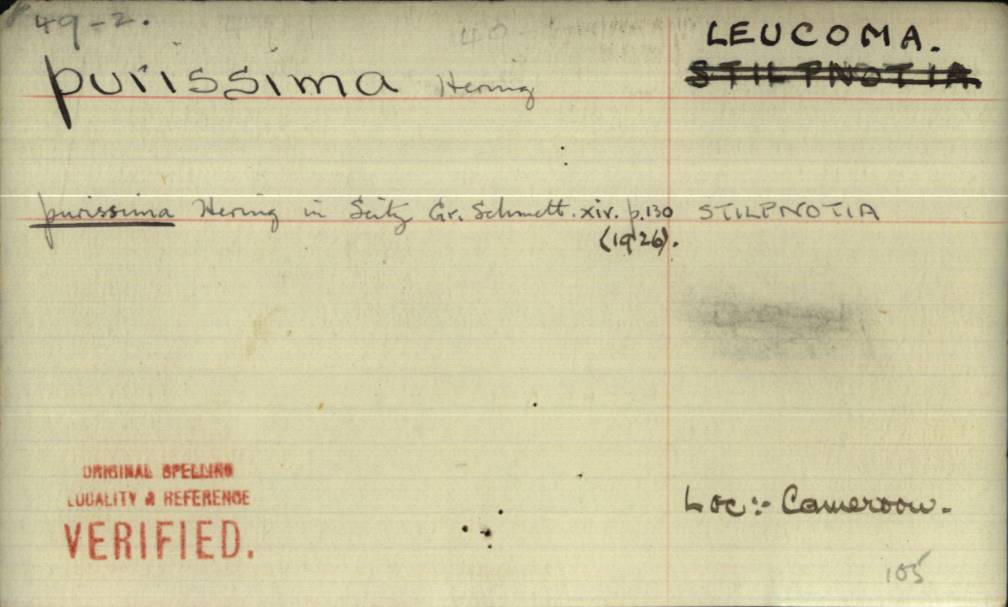 49-2.
LEUCOMA.
purissima Hering
STILPNOTIA.
purissima Hering in Seitz Gr. Schmett. xiv. p.130 STILPNOTIA
(1926).
ORIGINAL SPELLING
LOCALITY & REFERENCE
VERIFIED.
Loc:- Cameroow.
105